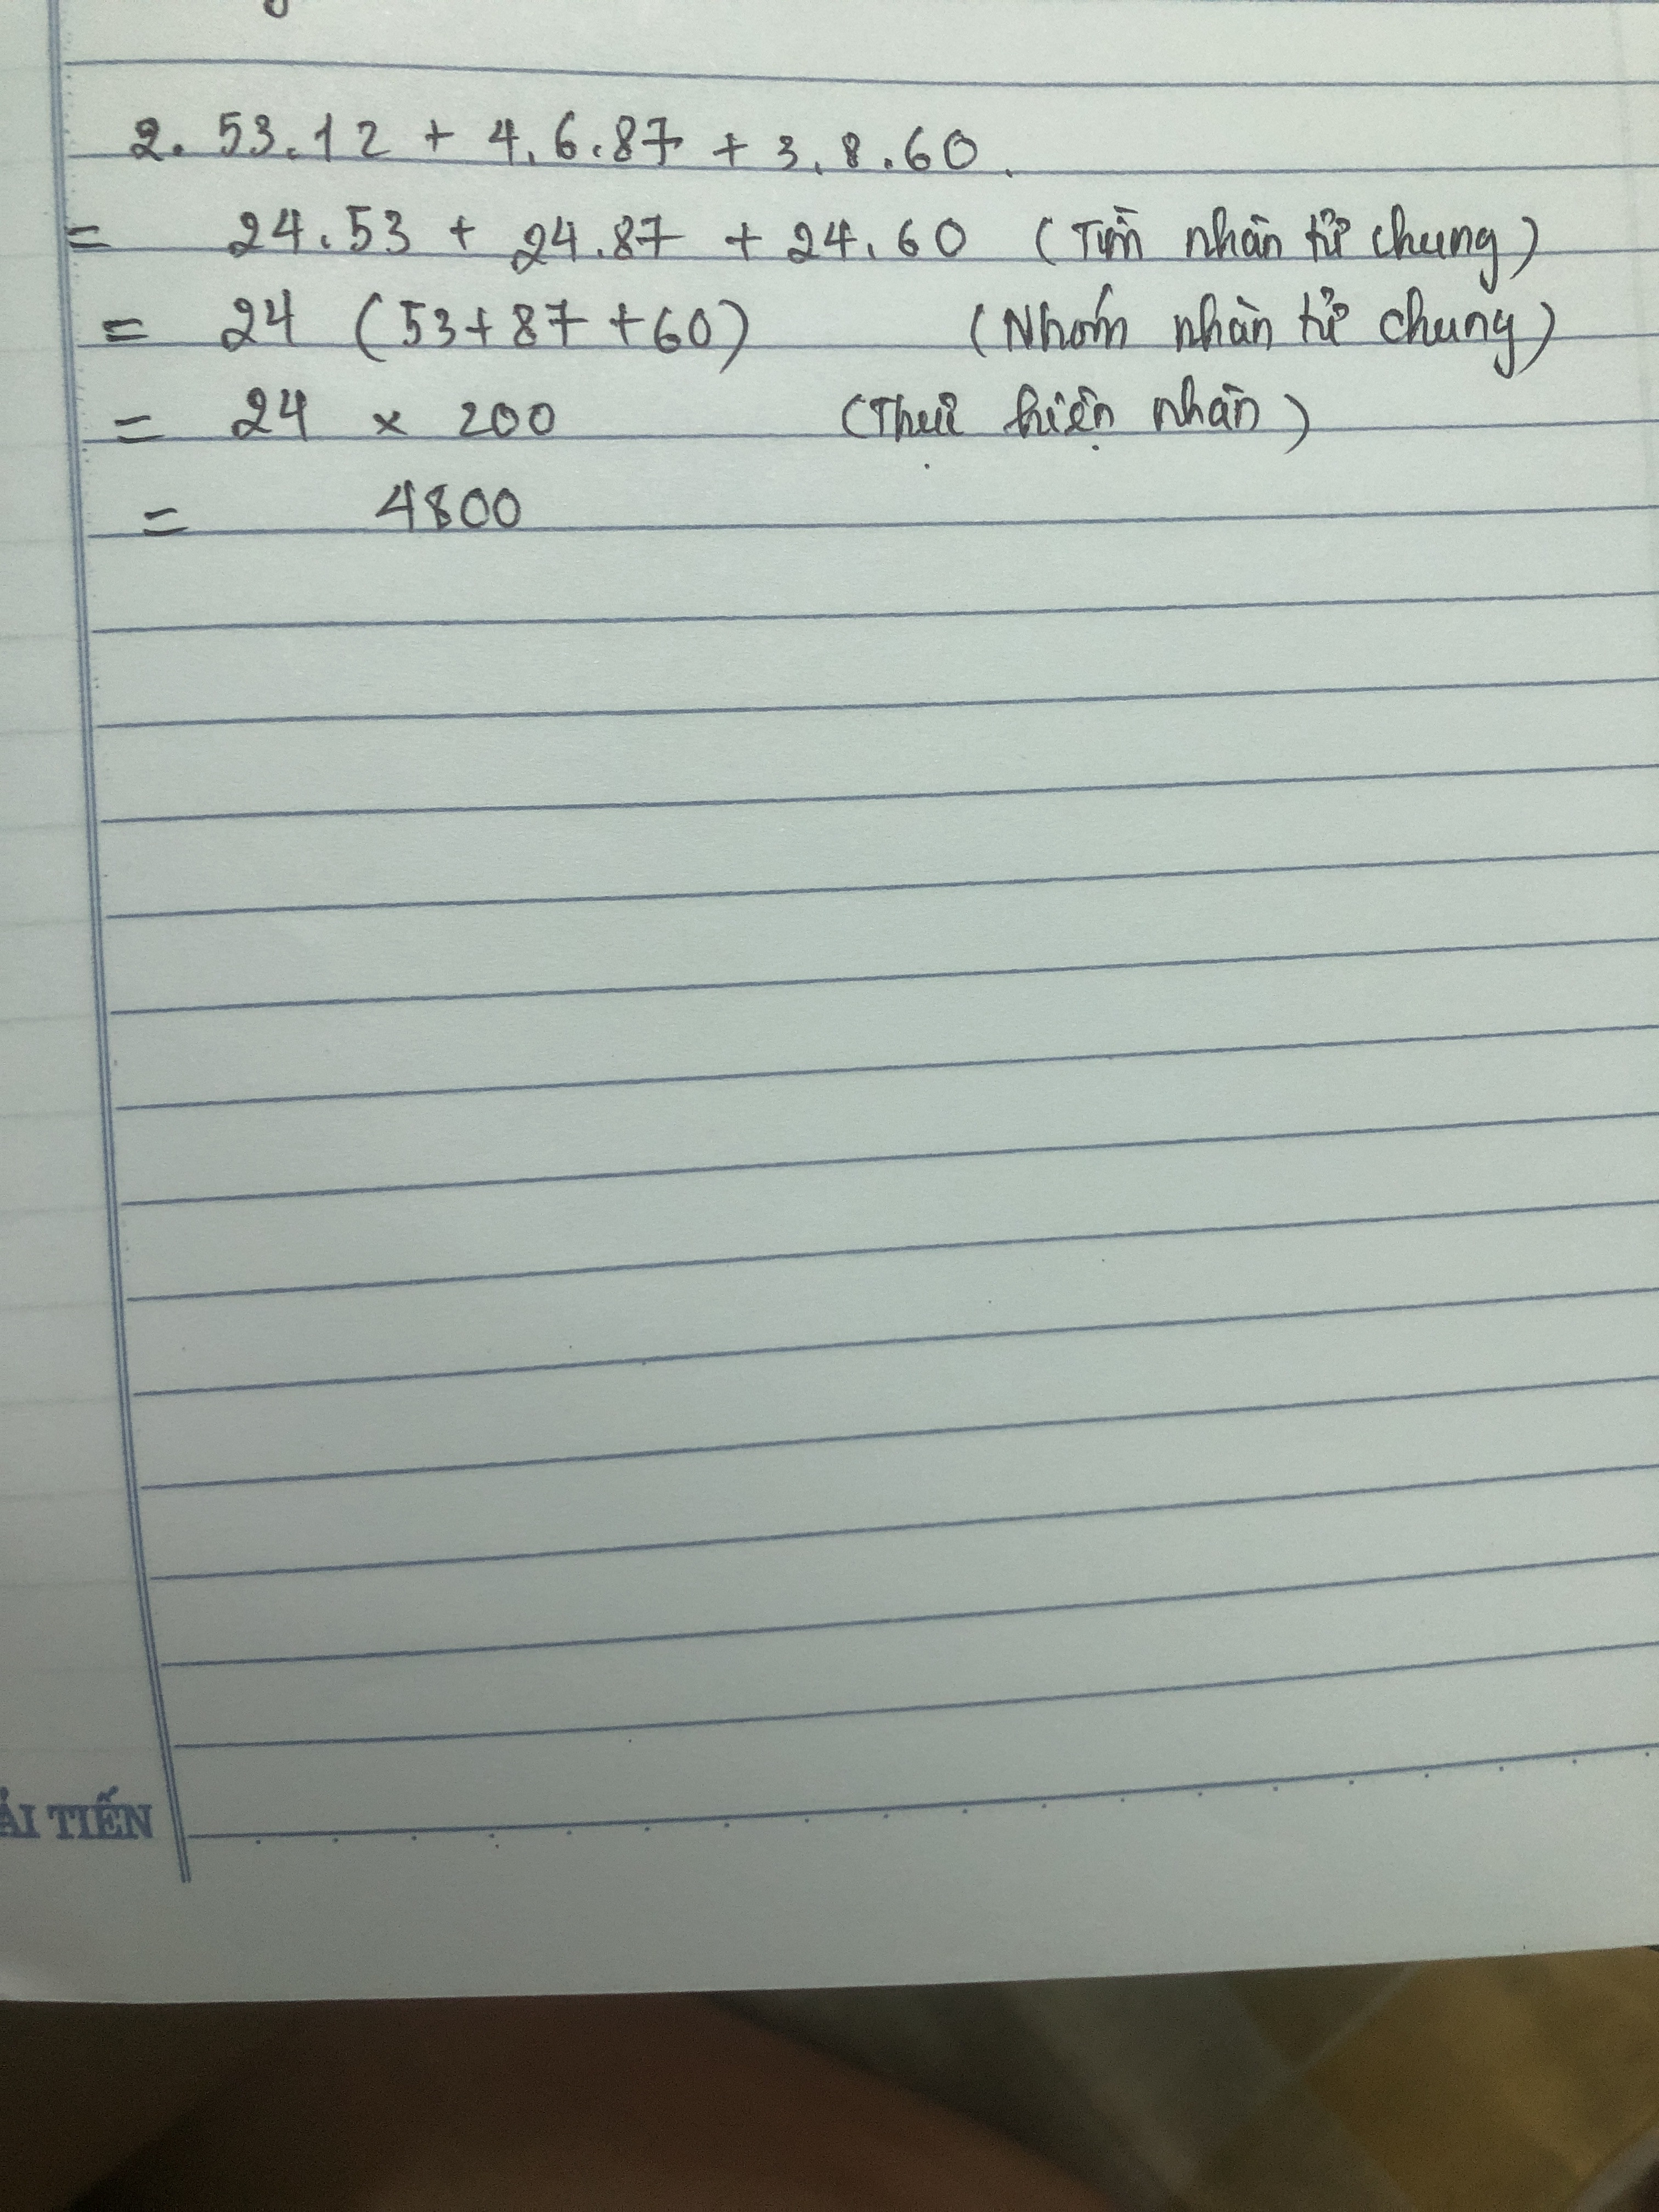 2.53.12 + 4.6.87 + 3.8.60.
= 24.53 + 24.87 + 24.60 (Tìm nhân tử chung)
= 24 (53+87+60) (Nhóm nhân tử chung)
= 24 x 200 (Thực hiện nhân)
= 4800
ẢI TIẾN